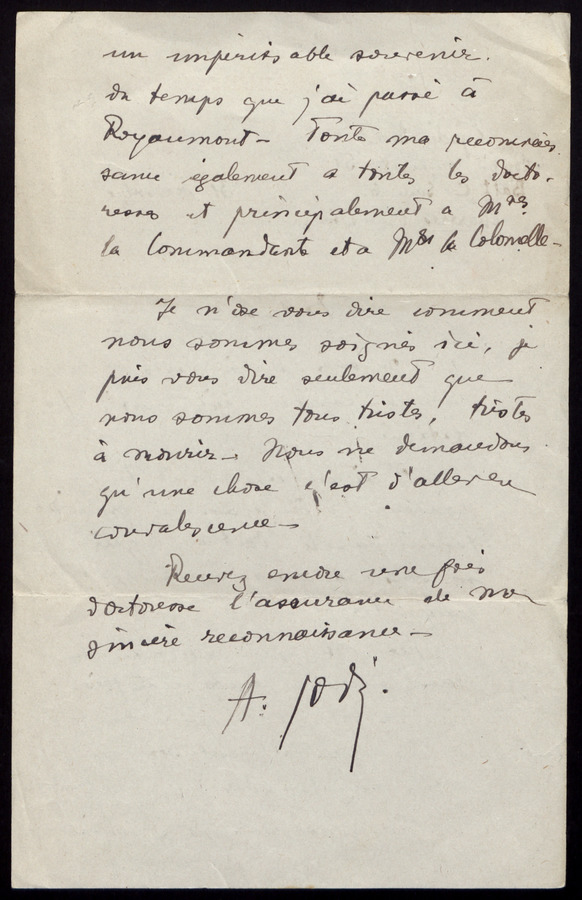 un impérissable souvenir.
du temps que j'ai passé à
Royaumont - Toute ma reconnais
sance également a toutes les docto-
resses et principalement a Mmes
la Commandante et a Mme la Colonelle -
Je n'ose vous dire comment
nous sommes soignés ici, je
puis vous dire seulement que
nous sommes tous tristes, tristes
à mourir - Nous ne demandons
qu'une chose c'est d'aller en
convalescence -
Recevez encore une fois
doctoresse l'assurance de ma
sincère reconnaissance -
A.